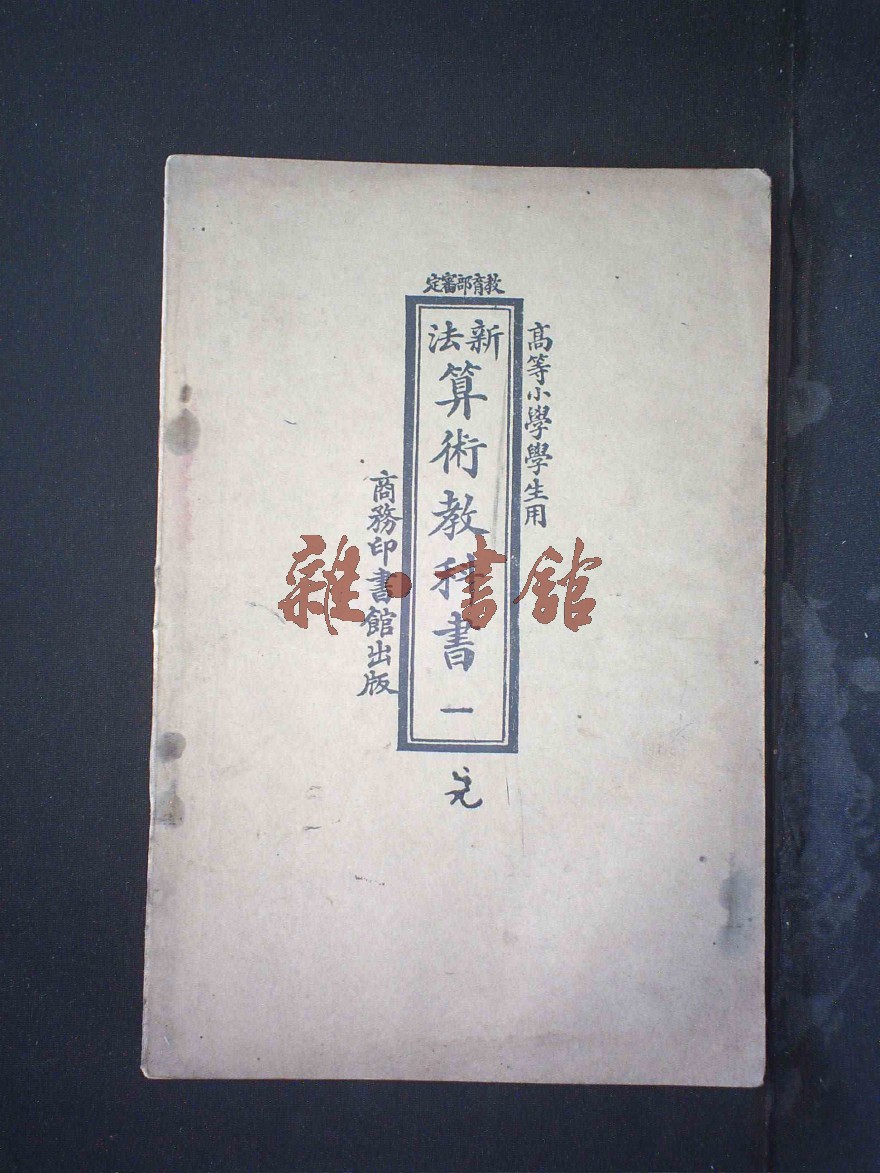 教育部審定
高等小學學生用
新法
算術教科書 一
商務印書館出版
雜·書館